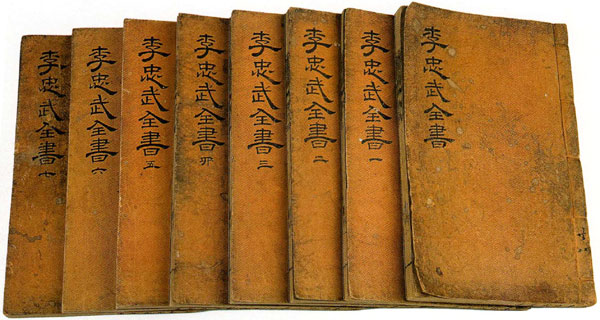 李忠武全書
李忠武全書 一
李忠武全書 二
李忠武全書 三
李忠武全書 四
李忠武全書 五
李忠武全書 六
李忠武全書 七